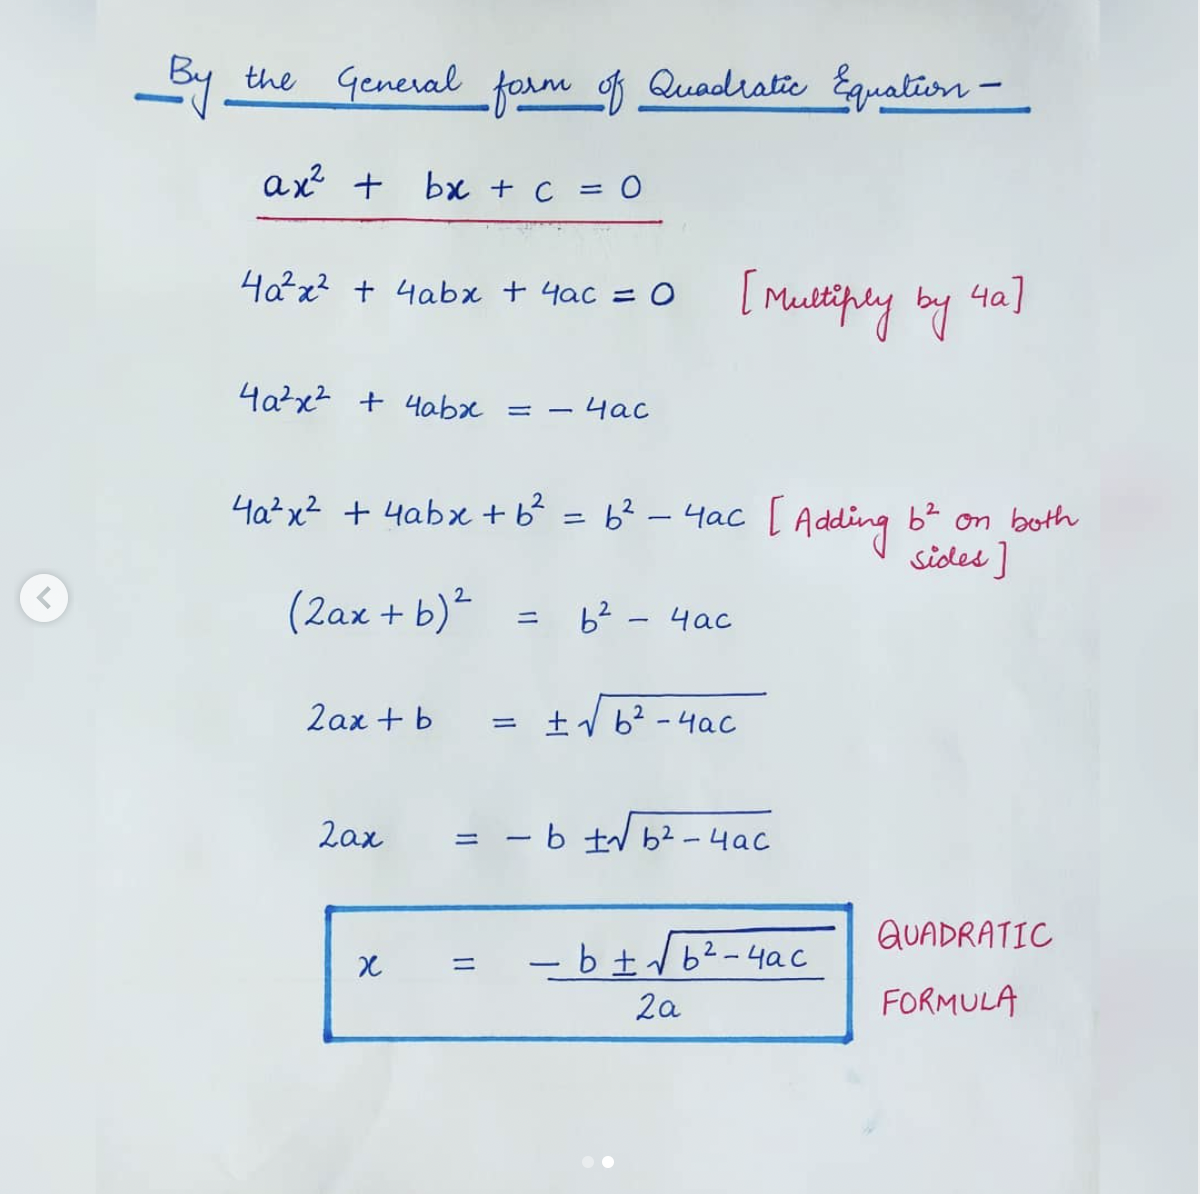 By the General form of Quadratic Equation -
ax² + bx + c = 0
4a²x² + 4abx + 4ac = 0 [Multiply by 4a]
4a²x² + 4abx = - 4ac
4a²x² + 4abx + b² = b² - 4ac [Adding b² on both
sides]
(2ax + b)² = b² - 4ac
2ax + b = ±√b² - 4ac
2ax = - b ±√b² - 4ac
x = - b ± √b² - 4ac
2a
QUADRATIC
FORMULA